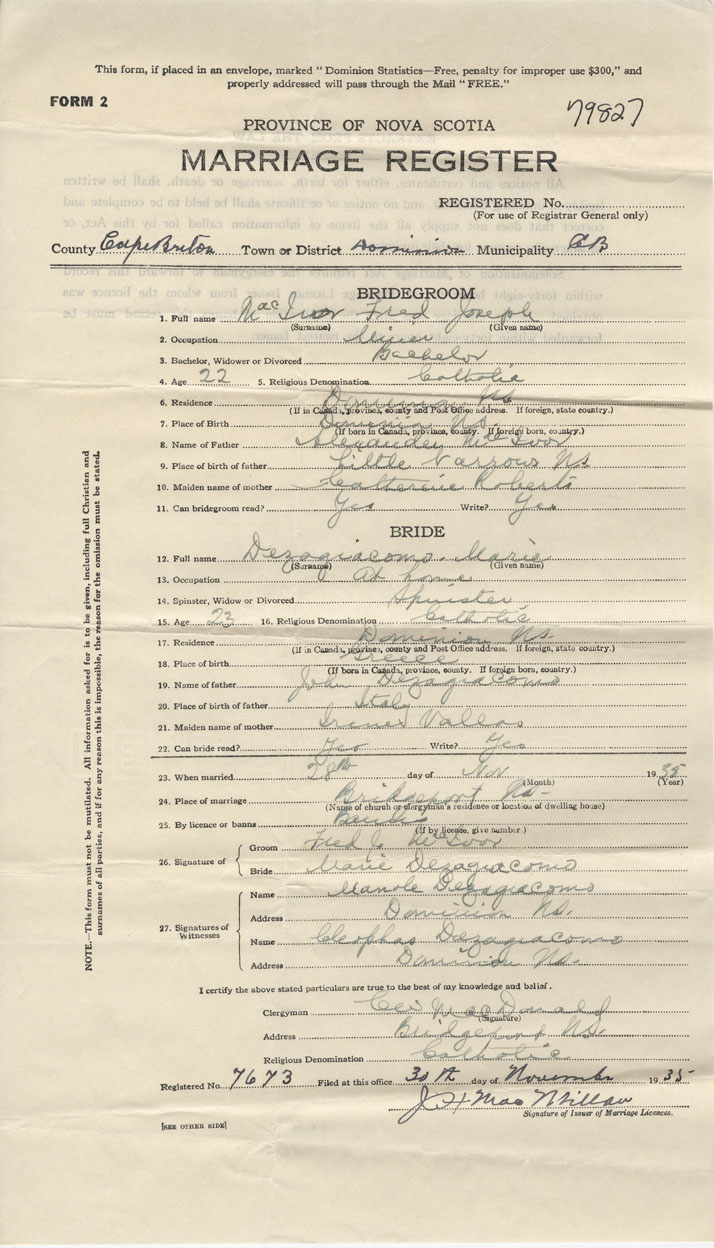 This form, if placed in an envelope, marked "Dominion Statistics—Free, penalty for improper use $300," and
properly addressed will pass through the Mail "FREE."
FORM 2
79827
PROVINCE OF NOVA SCOTIA
MARRIAGE REGISTER
REGISTERED No.
(For use of Registrar General only)
County Cape Breton Town or District Dominion Municipality CB
BRIDEGROOM
1. Full name MacIvor Fred Joseph
(Surname) (Given name)
2. Occupation Miner
3. Bachelor, Widower or Divorced Bachelor
4. Age 22 5. Religious Denomination Catholic
6. Residence Dominion NS
(If in Canada, province, county and Post Office address. If foreign, state country.)
7. Place of Birth Dominion N.S.
(If born in Canada, province, county. If foreign born, country.)
8. Name of Father Alexander McIvor
9. Place of birth of father Little Narrows NS
10. Maiden name of mother Catherine Roberts
11. Can bridegroom read? Yes Write? Yes
BRIDE
12. Full name Dezagiacomo Marie
(Surname) (Given name)
13. Occupation At home
14. Spinster, Widow or Divorced Spinster
15. Age 23 16. Religious Denomination Catholic
17. Residence Dominion NS.
(If in Canada, province, county and Post Office address. If foreign, state country.)
18. Place of birth Greece
(If born in Canada, province, county. If foreign born, country.)
19. Name of father John Dezagiacomo
20. Place of birth of father Italy
21. Maiden name of mother Irene Vallas
22. Can bride read? Yes Write? Yes
23. When married 28th day of Nov 1935
(Month) (Year)
24. Place of marriage Bridgeport NS-
(Name of church or clergyman's residence or location of dwelling house)
25. By licence or banns Banns
(If by licence, give number.)
26. Signature of
Groom Fred J. McIvor
Bride Marie Dezagiacomo
27. Signatures of Witnesses
Name Manole Dezagiacomo
Address Dominion NS.
Name Cleophas Dezagiacomo
Address Dominion NS.
I certify the above stated particulars are true to the best of my knowledge and belief.
Clergyman MacDonald
(Signature)
Address Bridgeport NS.
Religious Denomination Catholic
Registered No. 7673 Filed at this office 30th day of November 1935
J H MacMillan
Signature of Issuer of Marriage Licences.
[SEE OTHER SIDE]
NOTE.—This form must not be mutilated. All information asked for is to be given, including full Christian and
surnames of all parties, and if for any reason this is impossible, the reason for the omission must be stated.